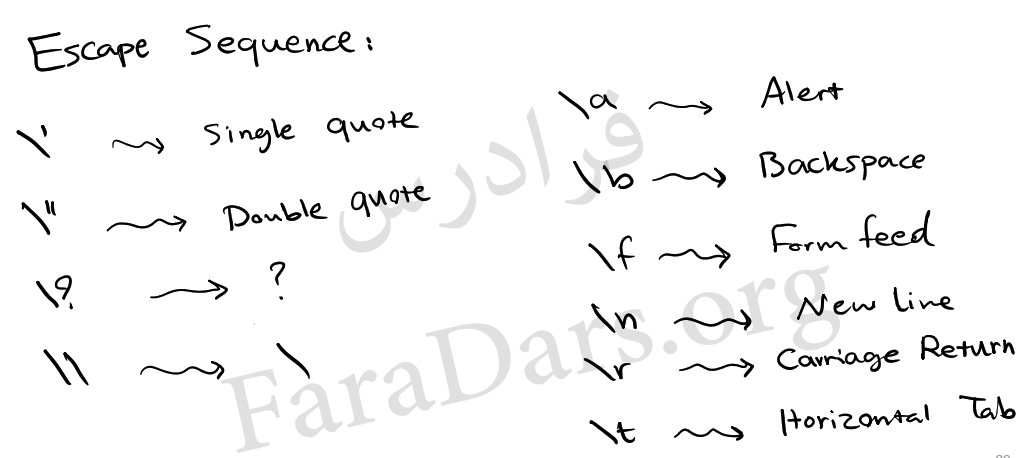 Escape Sequence:
\' → Single quote
\" → Double quote
\? → ?
\\ → \
\a → Alert
\b → Backspace
\f → Form feed
\n → New line
\r → Carriage Return
\t → Horizontal Tab
فرادرس
FaraDars.org